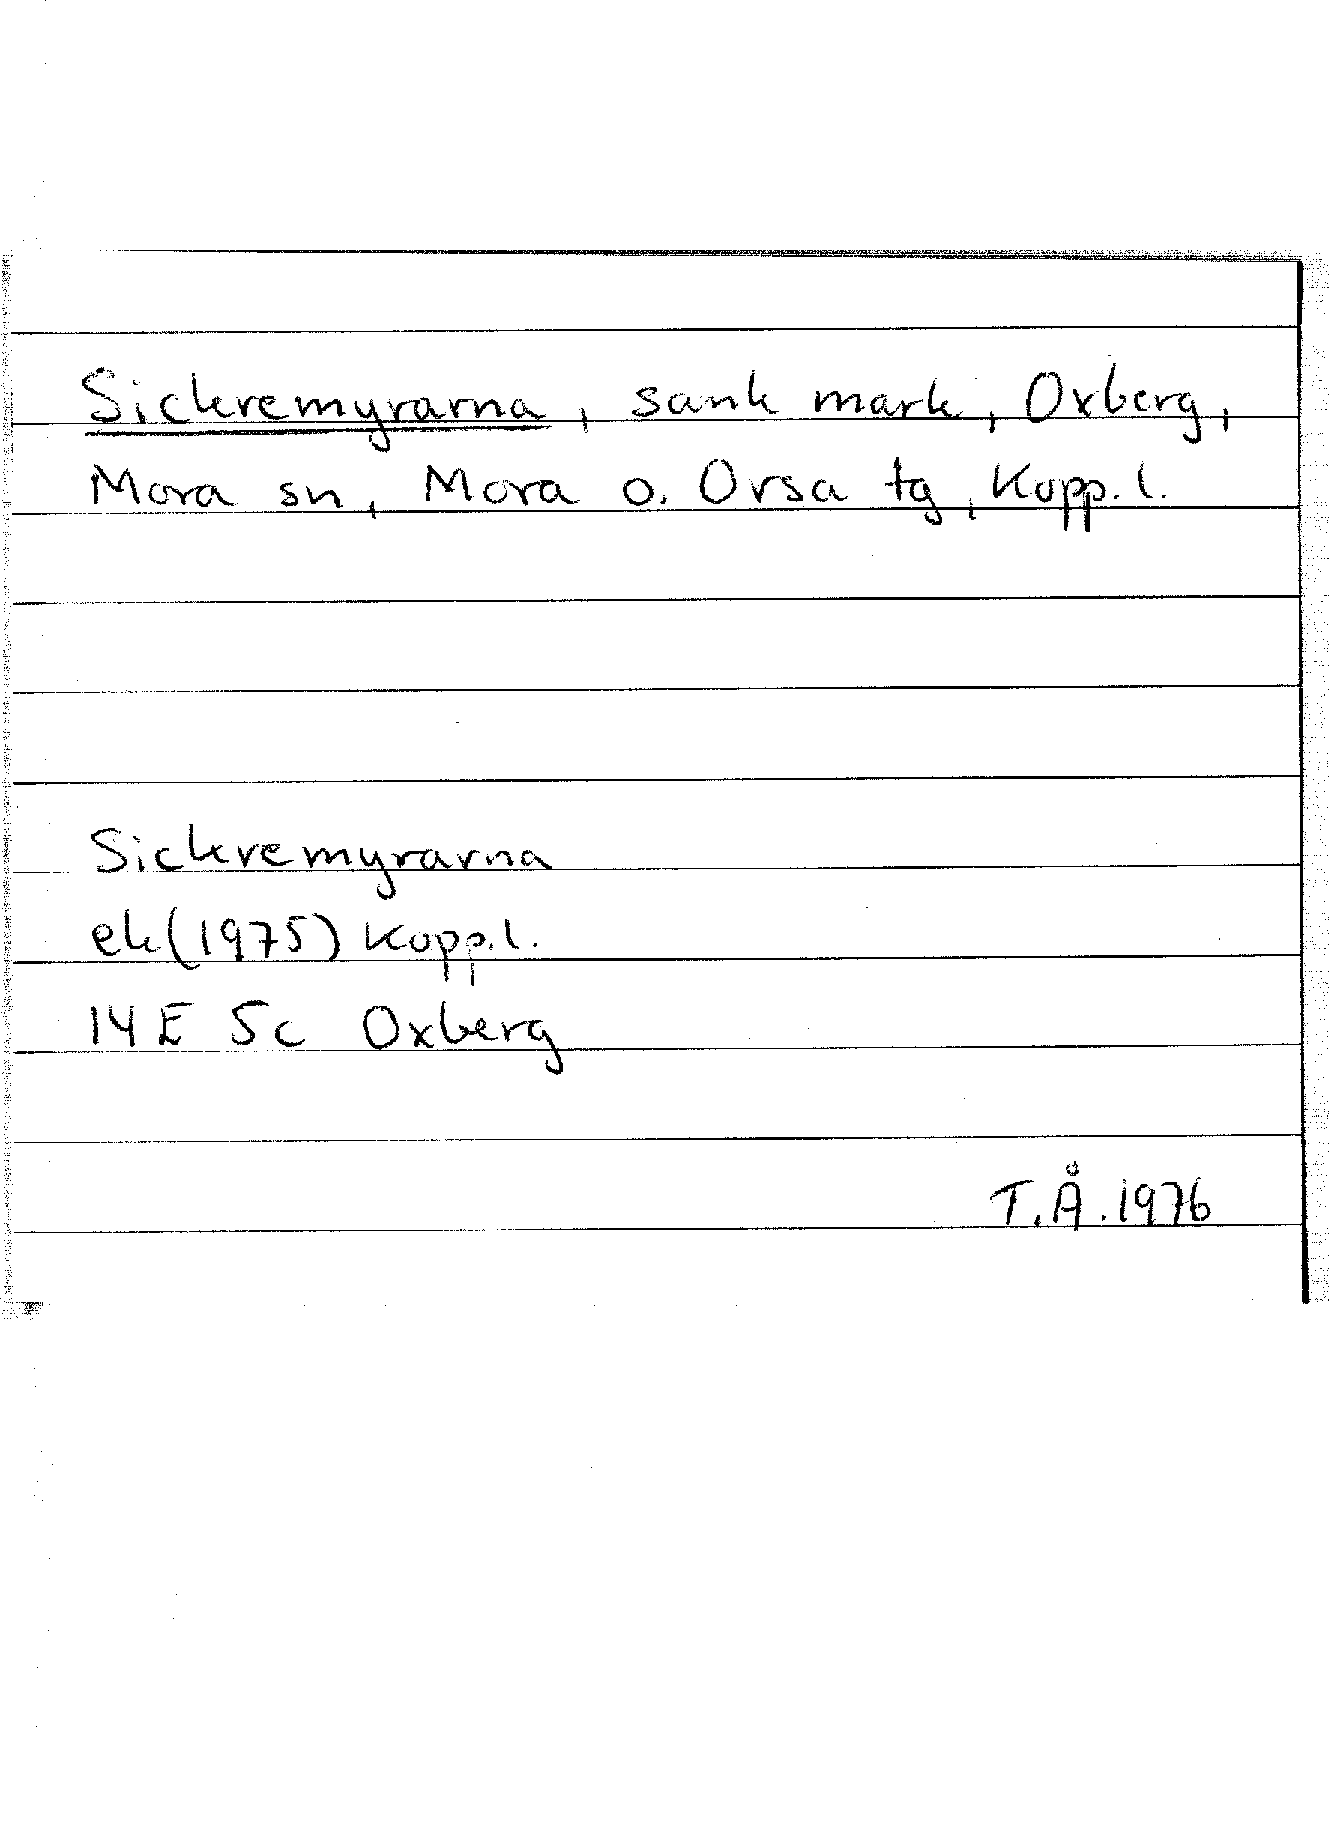 Sickremyrarna, sank mark, Oxberg,
Mora sn, Mora o. Orsa tg, Kopp. l.
Sickremyrarna
ek (1975) Kopp. l.
14E 5c Oxberg
T.Å. 1976